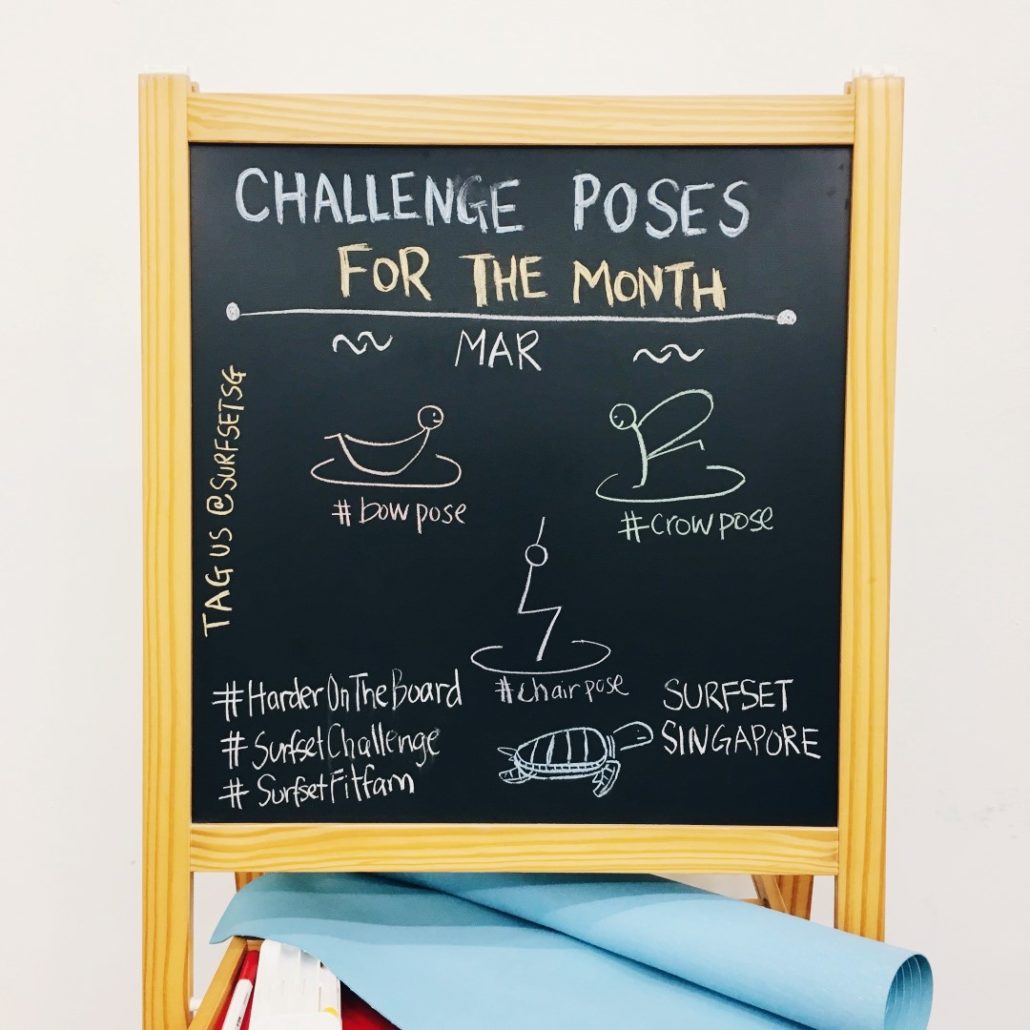 CHALLENGE POSES
FOR THE MONTH
MAR
TAG US @SURFSETSG
#bowpose
#crowpose
#chairpose
#HarderOnTheBoard
#SurfsetChallenge
#SurfsetFitfam
SURFSET
SINGAPORE